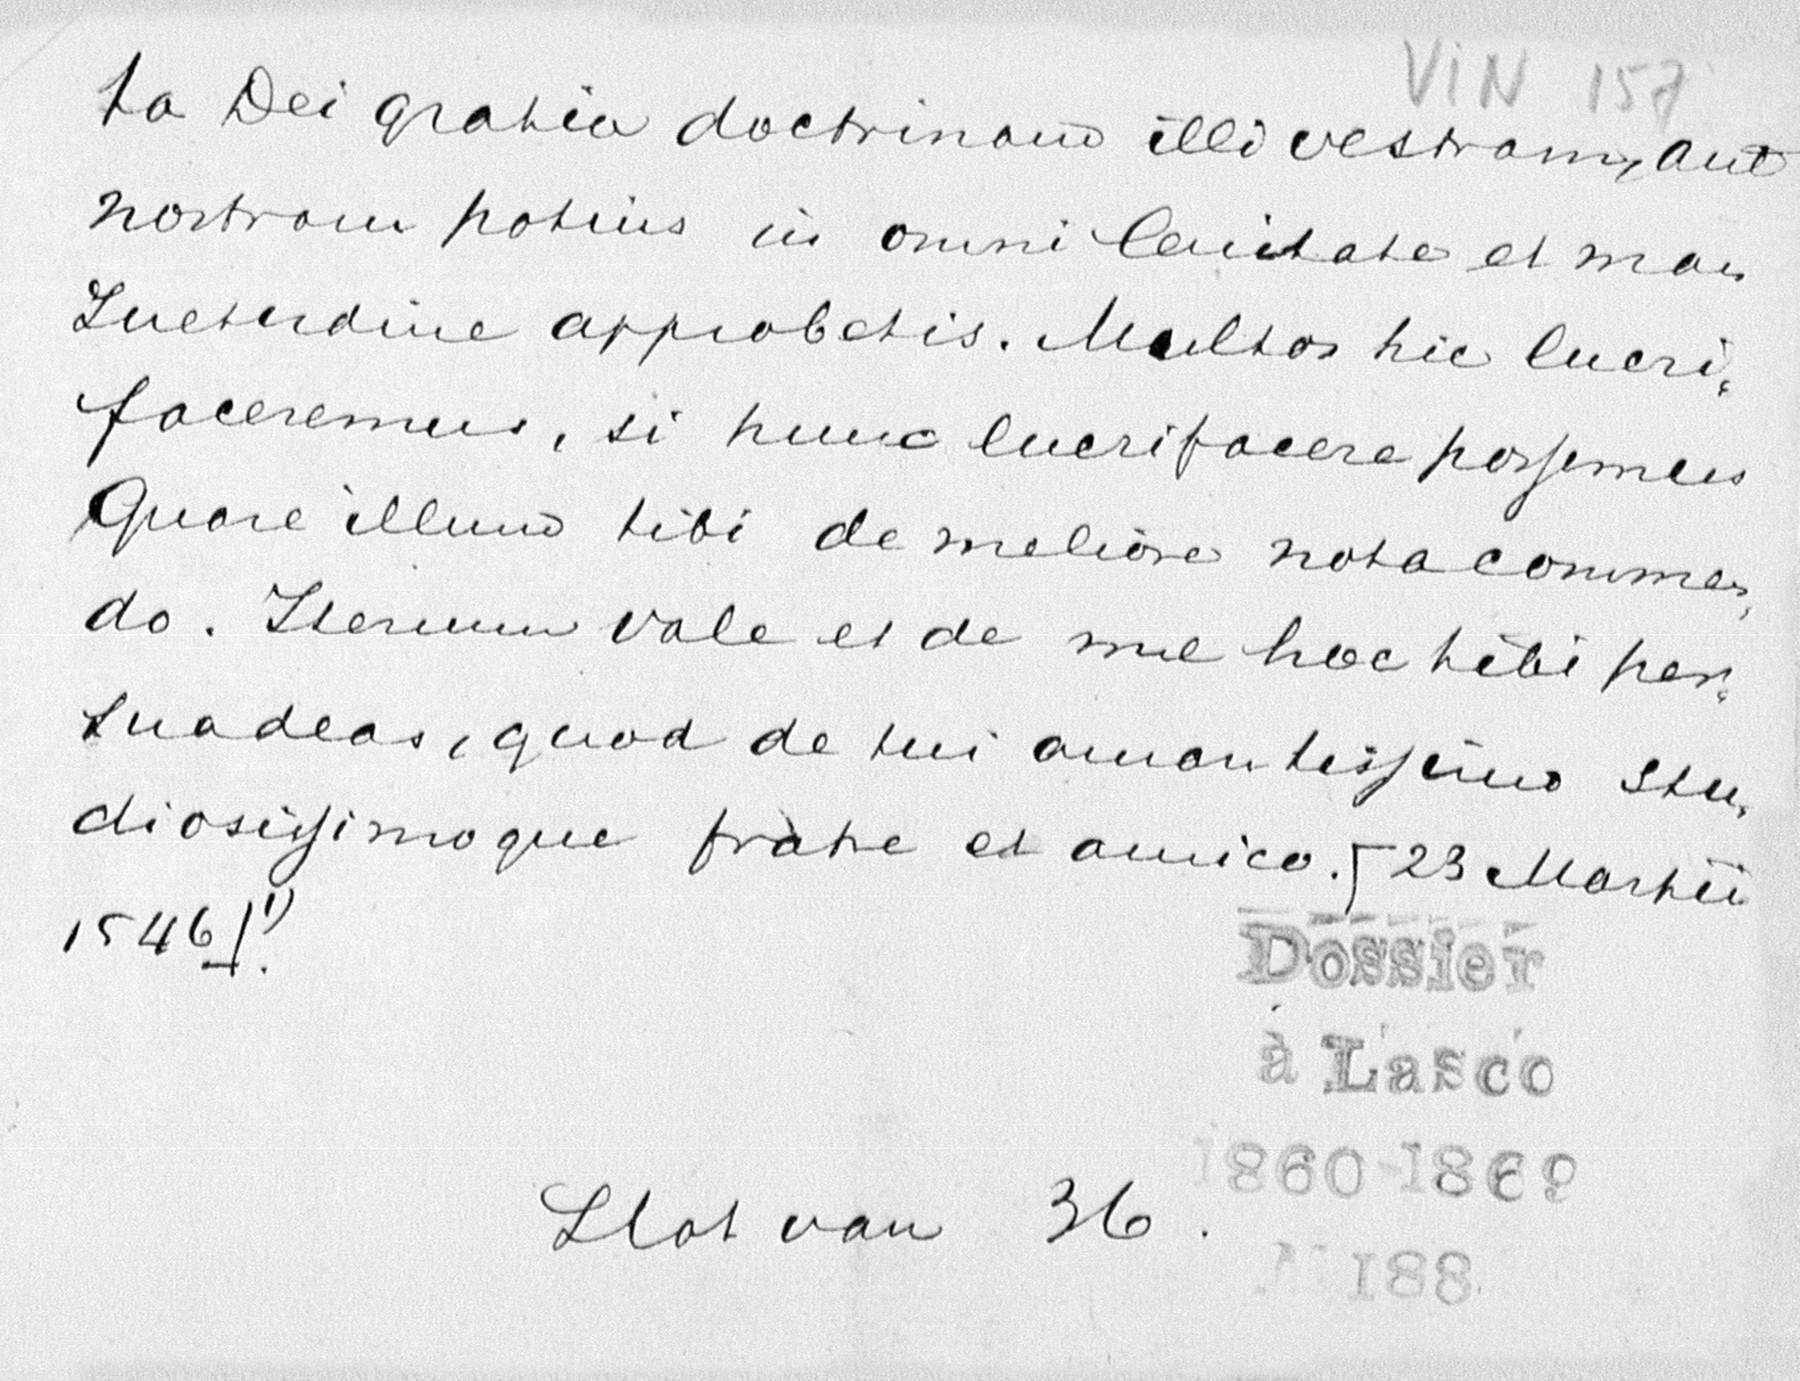 VIN 157
ta Dei gratia doctrinam illi vestram, aut
nostram potius in omni lenitate et man,
suetudine approbetis. Multos hic lucri,
faceremus, si hunc lucrifacere possemus
Quare illum tibi de meliore nota commen,
do. Iterum vale et de me hoc tibi per,
suadeas, quod de tui amantissimo stu,
diosissimoque fratre et amico. [23 Martii
1546]¹⁾.
Dossier
à Lasco
1860-1869
N 188
Slot van 36.